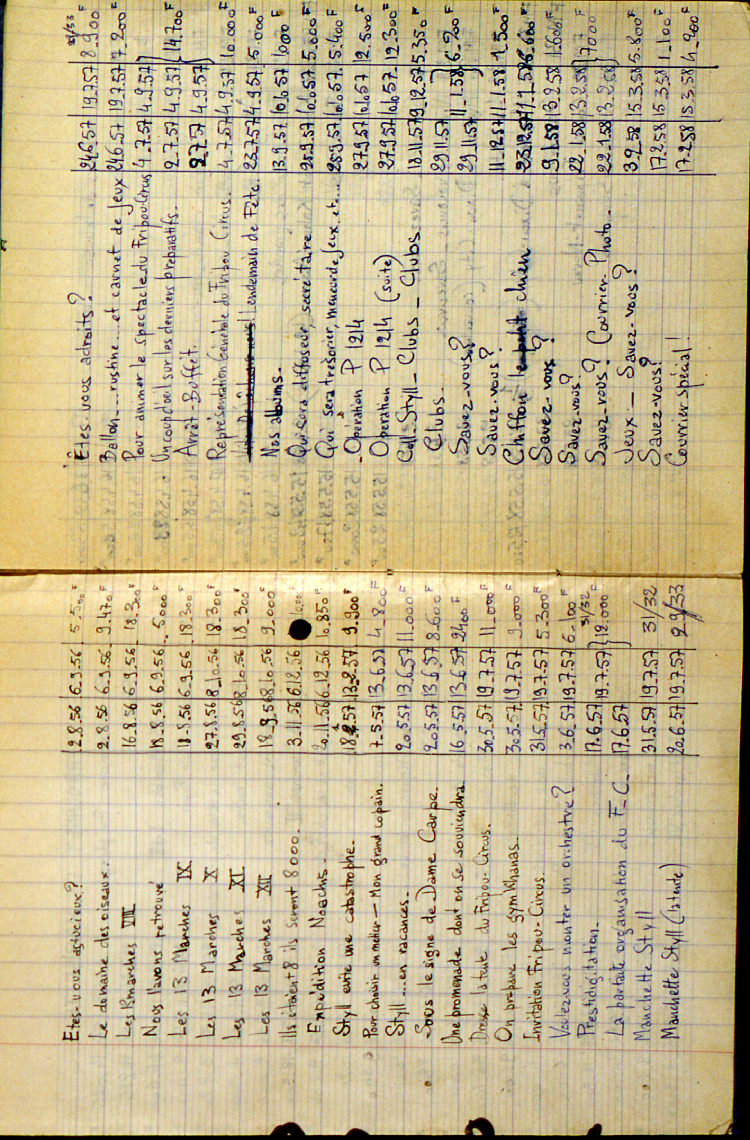 Etes-vous astucieux? 2.8.56 6.9.56 5.500F
Le domaine des oiseaux. 2.8.56 6.9.56 9.470F
Les 13 marches VIII 16.8.56 6.9.56 18.300F
Nous l'avons retrouvé 18.8.56 6.9.56 5.000F
Les 13 Marches IX 18.8.56 6.9.56 18.300F
Les 13 Marches X 27.8.56 8.10.56 18.300F
Les 13 Marches XI 29.8.56 8.10.56 18.300F
Les 13 Marches XII 18.9.56 8.10.56 9.000F
Ils étaient 8 ils seront 8000. 3.11.56 6.12.56
Expédition Noachis. 20.11.56 6.12.56 10.850F
Styll évite une catastrophe. 9.900F
Pour choisir un métier — Mon grand copain. 7.5.57 13.6.57 4.800F
Styll ... en vacances. 20.5.57 13.6.57 11.000F
Sous le signe de Dame Carpe. 20.5.57 13.6.57 8.600F
Une promenade dont on se souviendra 16.5.57 13.6.57 2400F
Dresse la tente du Fripou-Circus. 30.5.57 19.7.57 11.000F
On prépare les gymkhanas. 30.5.57 19.7.57 9.000F
Invitation Fripou-Circus. 31.5.57 19.7.57 5.300F
Voulez-vous monter un orchestre? 3.6.57 19.7.57 6.100F
Prestidigitation. 17.6.57 19.7.57 31/32
La parfaite organisation du F.C. 17.6.57 12.000F
Manchette Styll 31.5.57 19.7.57 31/32
Manchette Styll (latente) 20.6.57 19.7.57 29/33
Êtes-vous adroits? 24.6.57 19.7.57 8.900F
Ballon... rustine... et carnet de jeux 24.6.57 19.7.57 7.200F
Pour animer le spectacle du Fripou-Circus 4.7.57 4.9.57
Un coup d'oeil sur les derniers préparatifs. 2.7.57 4.9.57 14.700F
Arrêt-Buffet. 2.7.57 4.9.57
Représentation Générale du Fripou Circus. 4.7.57 4.9.57 10.000F
Lendemain de Fête. 23.7.57 4.9.57 5.000F
Nos albums. 13.9.57
Qui sera diffuseur, secrétaire 25.9.57 5.000F
Qui sera trésorier, meneur de jeux, et... 25.9.57 5.400F
Opération P 1214 27.9.57 12.500F
Opération P 1214 (suite) 27.9.57 12.300F
Call Styll — Clubs — Clubs 18.11.57 9.12.57 5.350F
Clubs. 29.11.57
Savez-vous? 29.11.57 11.1.58 6.200F
Savez-vous? 11.12.57 11.1.58 1.500F
Chiffon le petit chien 23.12.57 11.1.58
Savez-vous? 9.1.58 13.2.58 1.800F
Savez-vous? 22.1.58 13.2.58
Savez-vous? Courrier Photo. 22.1.58 13.2.58 7000F
Jeux — Savez-vous? 3.2.58 15.3.58 5.800F
Savez-vous? 17.2.58 15.3.58 1.100F
Courrier spécial! 17.2.58 15.3.58 4.200F